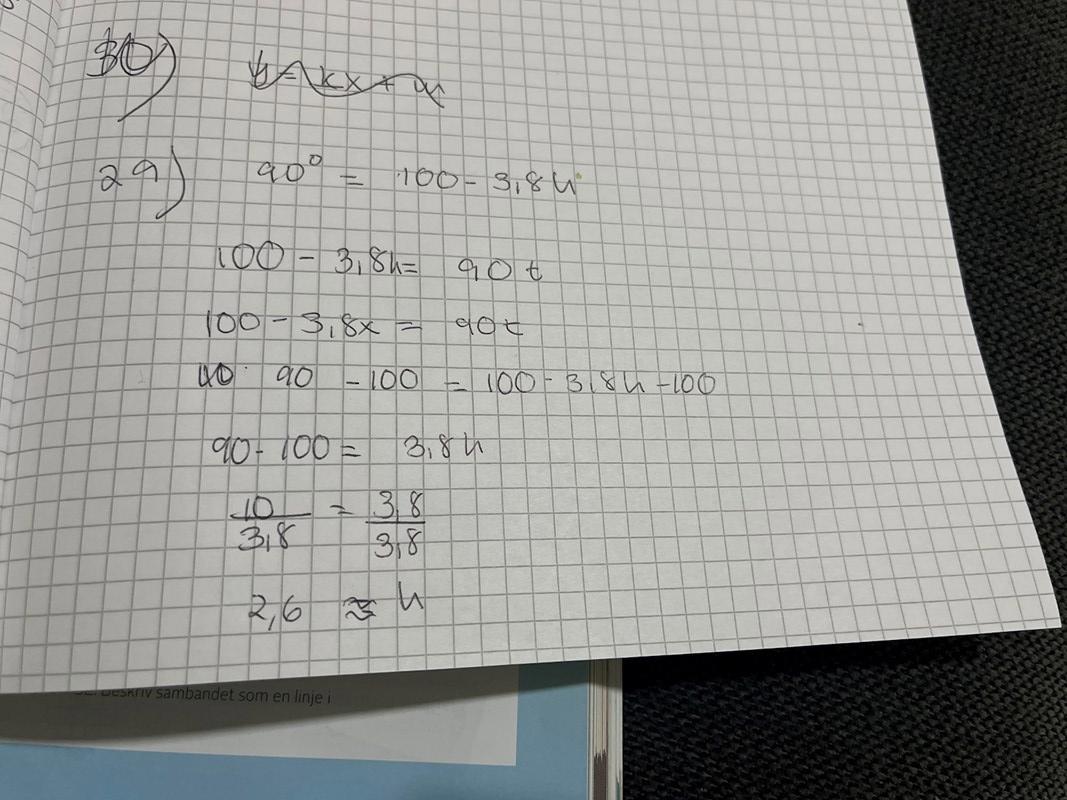 30)
y = kx + m
29) 90° = 100 - 3,8h
100 - 3,8h = 90 t
100 - 3,8x = 90t
90 - 100 = 100 - 3,8h - 100
90 - 100 = 3,8h
10/3,8 = 3,8/3,8
2,6 ≈ h
Beskriv sambandet som en linje i